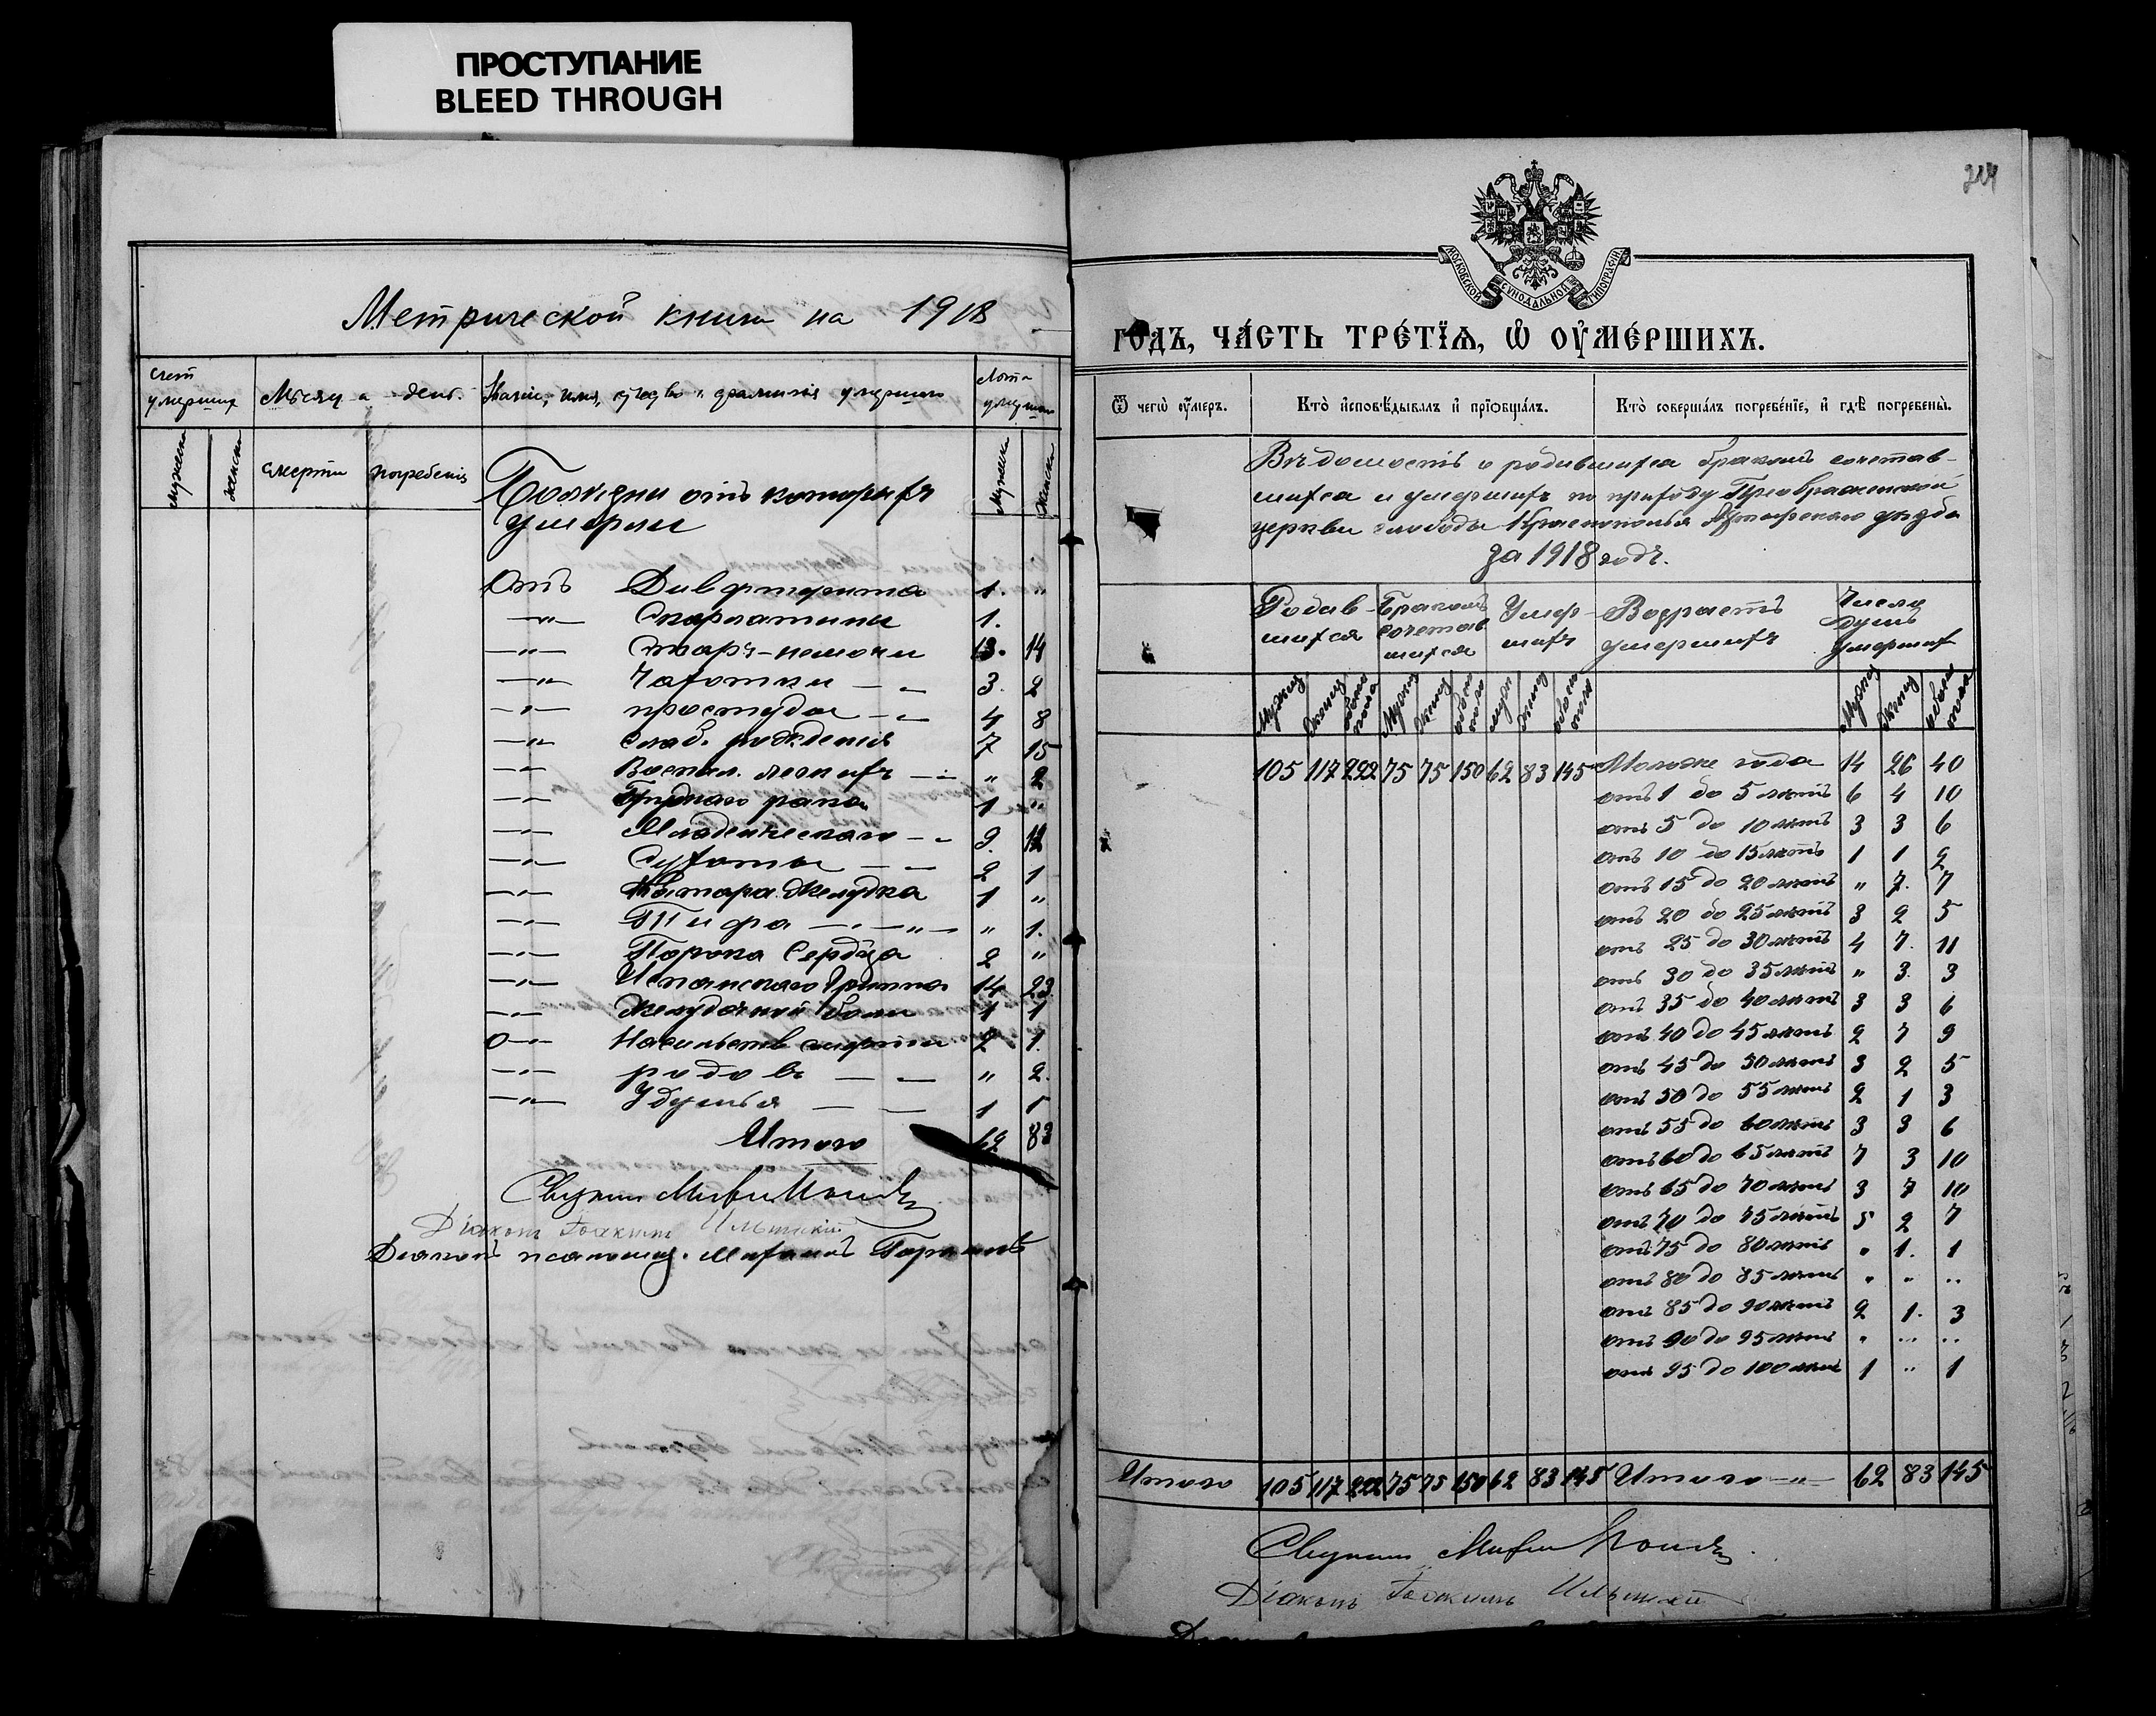 ПРОСТУПАНИЕ
BLEED THROUGH
Метрической книги на 1918
счет умерших
Мѣсяц и день.
Званіе, имя, отчество и фамилія умершаго
Лѣта умершаго
мужска
женска
смерти
погребенія
Мужска
Женска
Болезни отъ которыхъ
умерли
Отъ Дифтерита 1. "
—"— Скарлатины 1.
—"— Стар.-немочи 13. 14
—"— Чахотки — „ 3. 2
—"— простуды — „ 4 8
—"— Слаб. рожденія 7 15
—"— Воспал. легкихъ — " 2
—"— Груднаго рака 1 "
—"— Младенческаго — „ 9. 12
—"— Сухоты — — 2 1
—"— Катара желудка 1 "
—"— Тифа —"—"— " 1.
—"— Порока Сердца 2 "
—"— Испанскаго Гриппа 14 23
—"— Желудочной боли 1 1
—"— Насильств смерти 2 1.
—"— родовъ — — " 2.
—"— Удушья — — 1 1
Итого 62 83
Діаконъ Іоакимъ Ильинскій
Діаконъ псаломщ.
224
МОСКОВСКОЙ СѴНОДАЛЬНОЙ ТИПОГРАФІИ
го́дъ, ча́сть тре́тїѧ, ѡ҆ ᲂу҆ме́ршихъ.
Ѿ чегѡ̀ ᲂу҆́меръ.
Кто̀ и҆сповѣ́дывалъ и҆ прїѡбща́лъ.
Кто̀ соверша́лъ погребе́нїе, и҆ гдѣ̀ погребены̀.
Вѣдомость о родившихся бракомъ сочетав-
шихся и умершихъ по приходу Преображенской
церкви слободы Краснополья Ахтырскаго уѣзда
за 1918 годъ.
Родив-
шихся
Бракомъ
сочетав
шихся
Умер-
шихъ
Возрастъ
умершихъ
Число
душъ
умерших
Мужск
Женск
обоего пола
Мужск
Женск
обоего пола
муж
женск
обоего пола
Мужск
Женск
обоего пола
105 117 222 75 75 150 62 83 145 Моложе года 14 26 40
отъ 1 до 5 лѣтъ 6 4 10
отъ 5 до 10 лѣтъ 3 3 6
отъ 10 до 15 лѣтъ 1 1 2
отъ 15 до 20 лѣтъ " 7. 7
отъ 20 до 25 лѣтъ 3 2 5
отъ 25 до 30 лѣтъ 4 7. 11
отъ 30 до 35 лѣтъ " 3. 3
отъ 35 до 40 лѣтъ 3 3 6
отъ 40 до 45 лѣтъ 2 7 9
отъ 45 до 50 лѣтъ 3 2 5
отъ 50 до 55 лѣтъ 2 1 3
отъ 55 до 60 лѣтъ 3 3 6
отъ 60 до 65 лѣтъ 7 3 10
отъ 65 до 70 лѣтъ 3 7 10
отъ 70 до 75 лѣтъ 5 2 7
отъ 75 до 80 лѣтъ " 1. 1
отъ 80 до 85 лѣтъ " " "
отъ 85 до 90 лѣтъ 2 1. 3
отъ 90 до 95 лѣтъ " " "
отъ 95 до 100 лѣтъ 1 " 1
Итого 105 117 222 75 75 150 62 83 145 Итого —"— 62 83 145
Діаконъ Іоакимъ Ильинскій